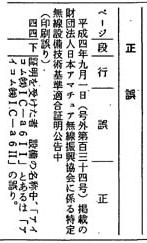 正誤
ページ 段 行 誤 正
平成四年九月一日(号外第百三十四号)掲載の
財団法人日本アマチュア無線振興協会に係る特定
無線設備技術基準適合証明公告中
(印刷誤り)
四四 下 証明を受けた者 設備の名称中、「アイ
コム㈱IC-α6Ⅱ」とあるは「ア
イコム㈱IC-α6Ⅲ」の誤り。